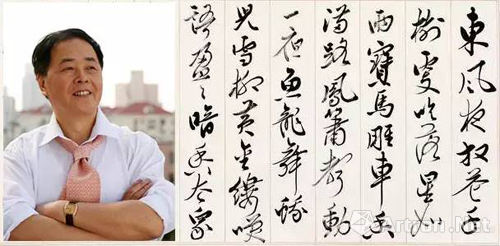 東風夜放花千
樹更吹落星如
雨寶馬雕車香
滿路鳳簫聲動
一夜魚龍舞蛾
兒雪柳黃金縷笑
語盈々暗香去眾
Artron.Net